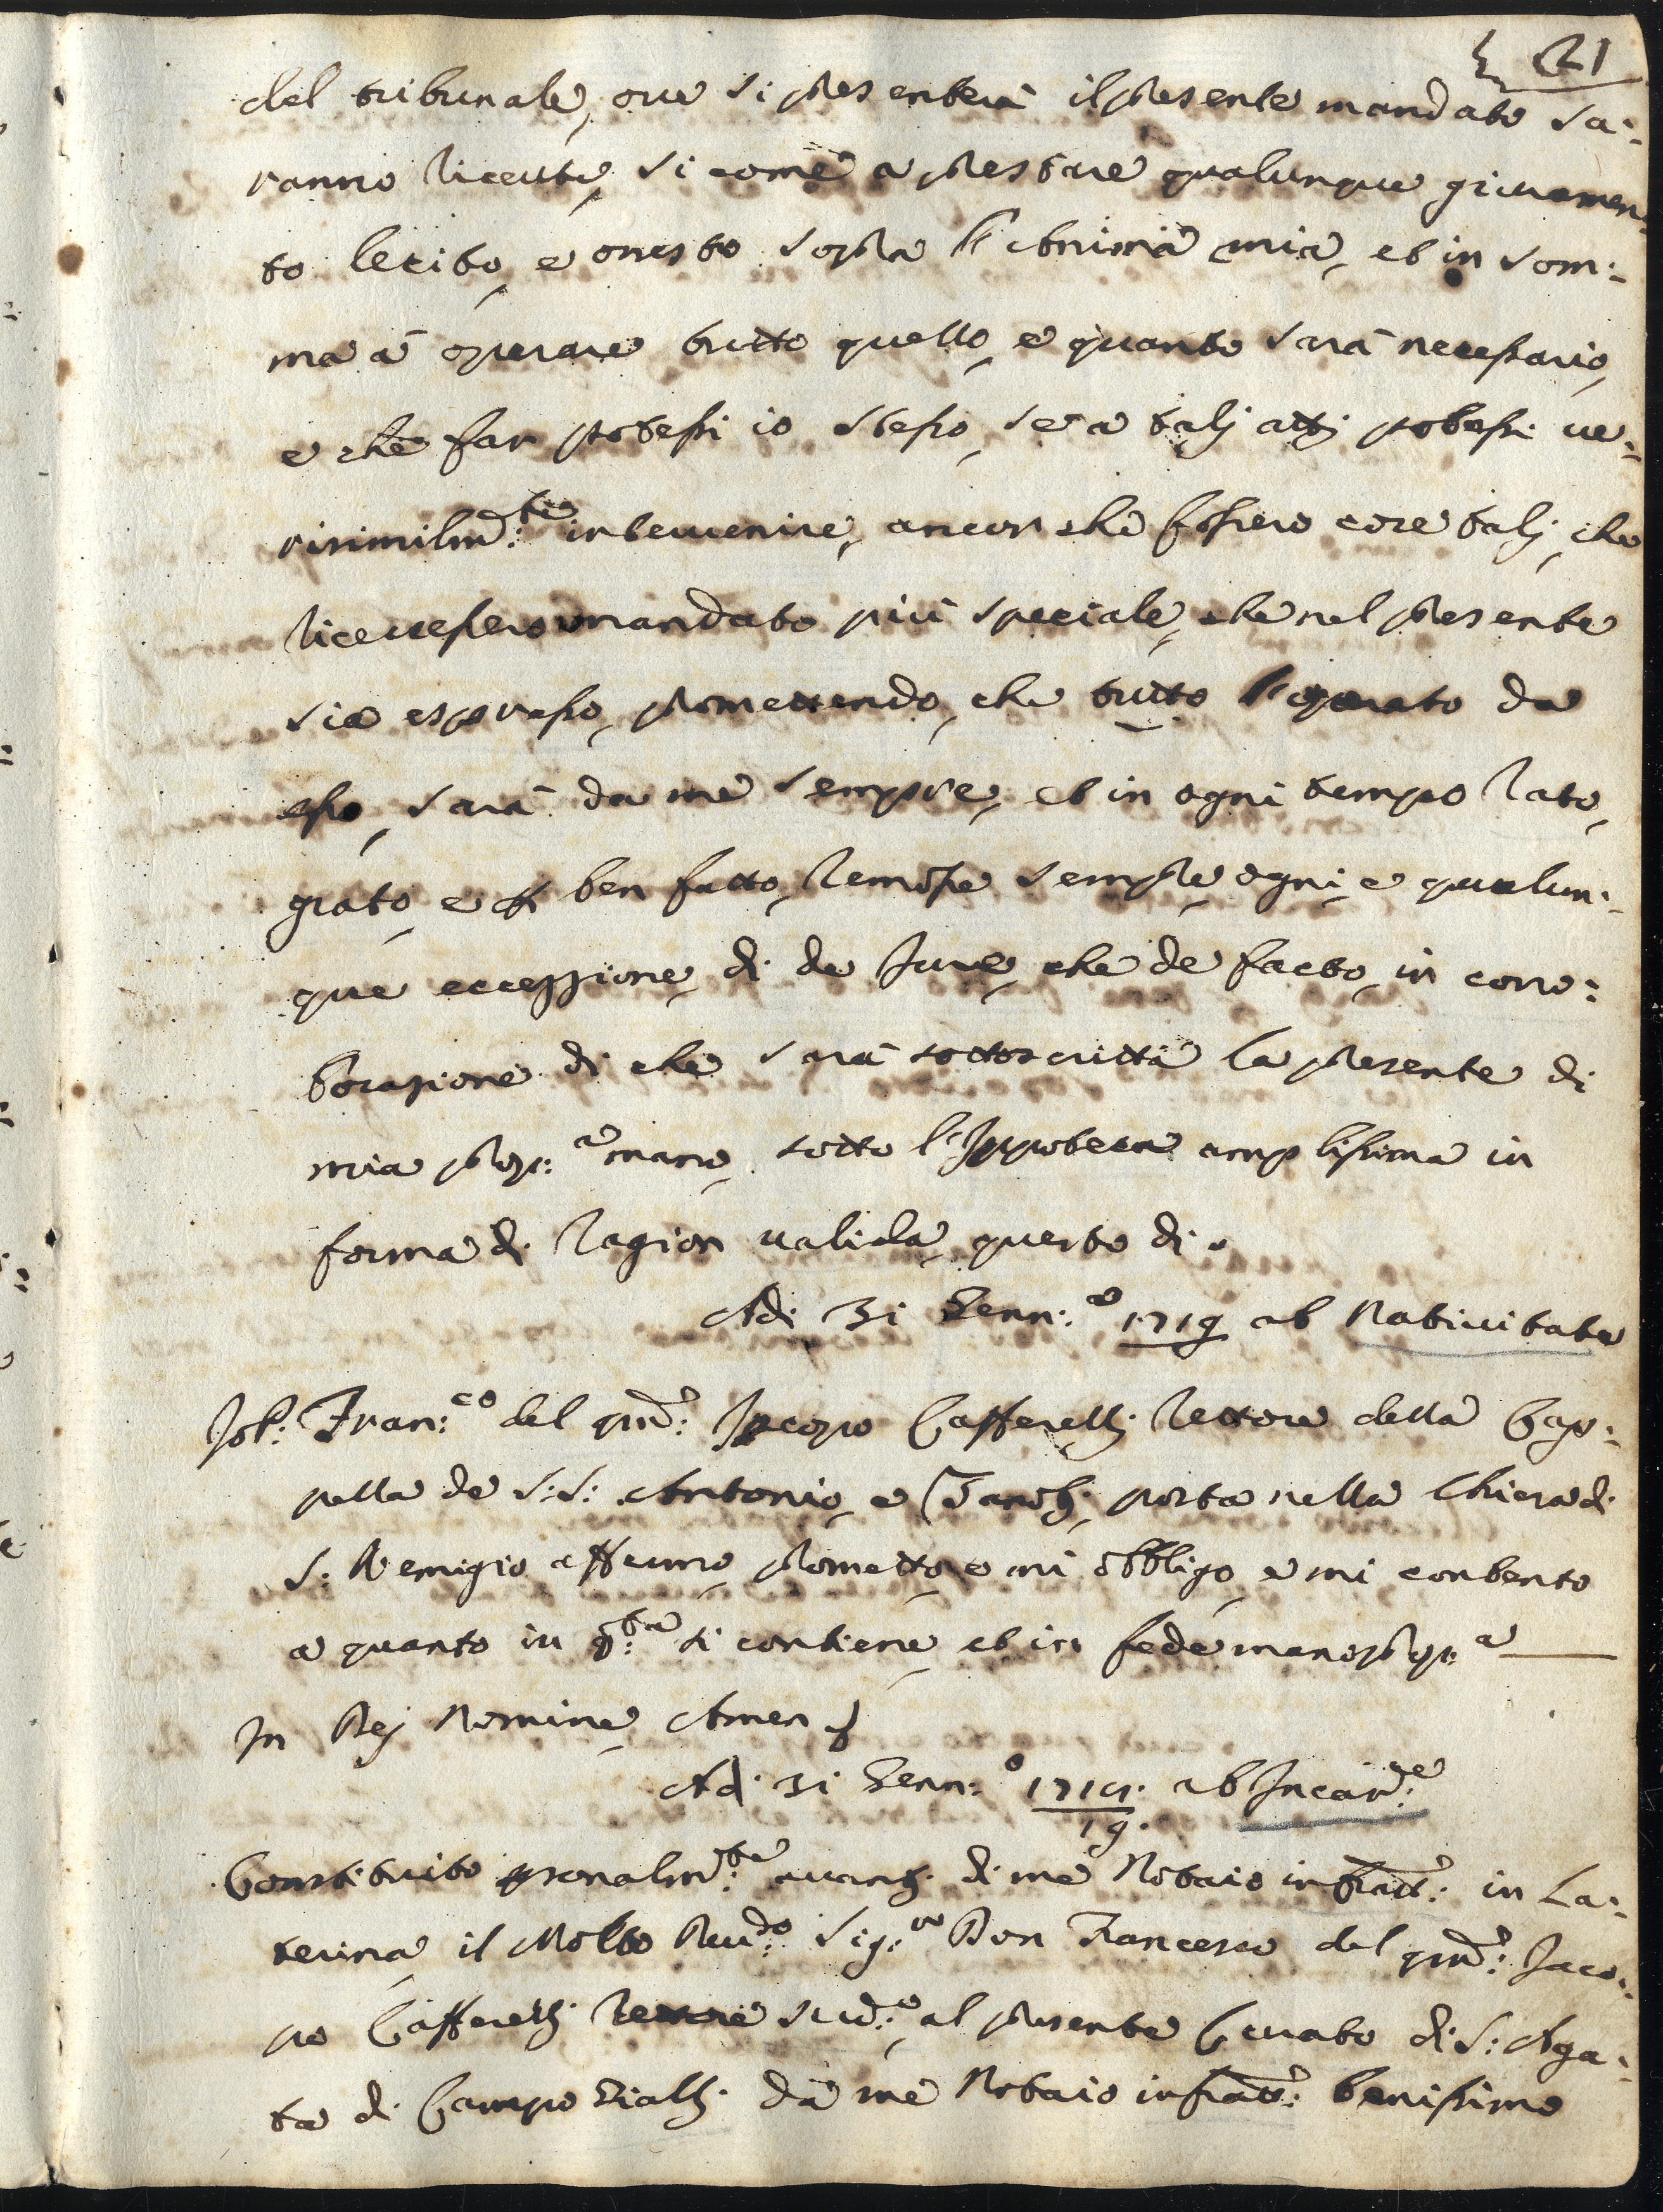 21
del tribunale, ove si presenterà il presente mandato sa:
ranno ricevute, si come a prestare qualunque giuramen:
to lecito, e onesto sopra l'Anima mia, et in som:
ma à operare tutto quello, e quanto sarà necessario,
e che far potessi io stesso, se a talj attj potessi ve:
risimilm:te intervenire, ancor che fossero cose talj, che
ricercassero mandato più speciale, che nel presente
sia espresso, promettendo, che tutto l'operato da
esso, sarà da me sempre, et in ogni tempo rato,
grato, e ben fatto, remossa sempre ogni, e qualun:
que eccezzione, di de Jure, che de facto, in corro:
borazione di che sarà sottoscritta la presente di
mia prop:a mano, sotto l'Ippoteca amplissima in
forma di ragion valida, questo di.
Adi 31 Genn:o 1719 ab Nativitate
Io P: Fran:co del qm: Jacopo Cafferellj rettore della Cap:
pella de S:S: Antonio, e posta nella Chiesa di
S: Remigio affermo, prometto, e mi obbligo, e mi contento
a quanto in q:ta si contiene, et in fede mano prop:a
In Dej Nomine Amen
Adi 31 Genn:o 1718. ab Incar:e
19.
Constituito personalm:te avantj di me Notaio infratt: in La:
terina il Molto Revdo: Sig:re Don Francesco del qm: Jaco:
po Cafferellj rettore sud:o, al presente Curato di S: Aga:
ta di Campo Giallj. da me Notaio infratt: benissimo